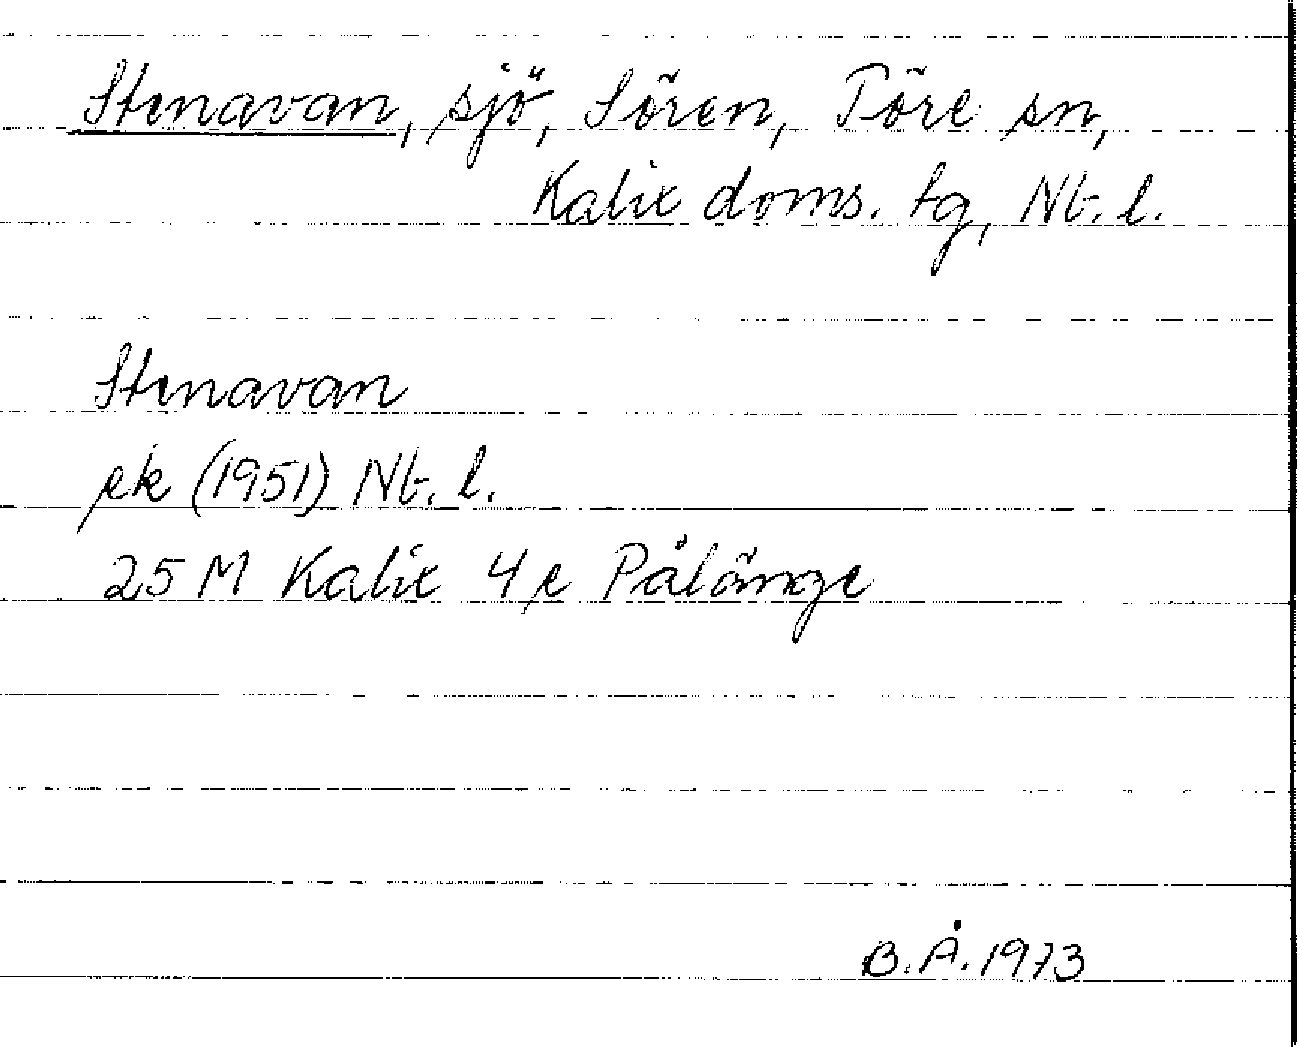 Stenavan, sjö, Sören, Töre sn,
Kalix doms. tg, Nb. l.
Stenavan
ek (1951) Nb. l.
25 M Kalix 4 e Pålänge
B.Å. 1973